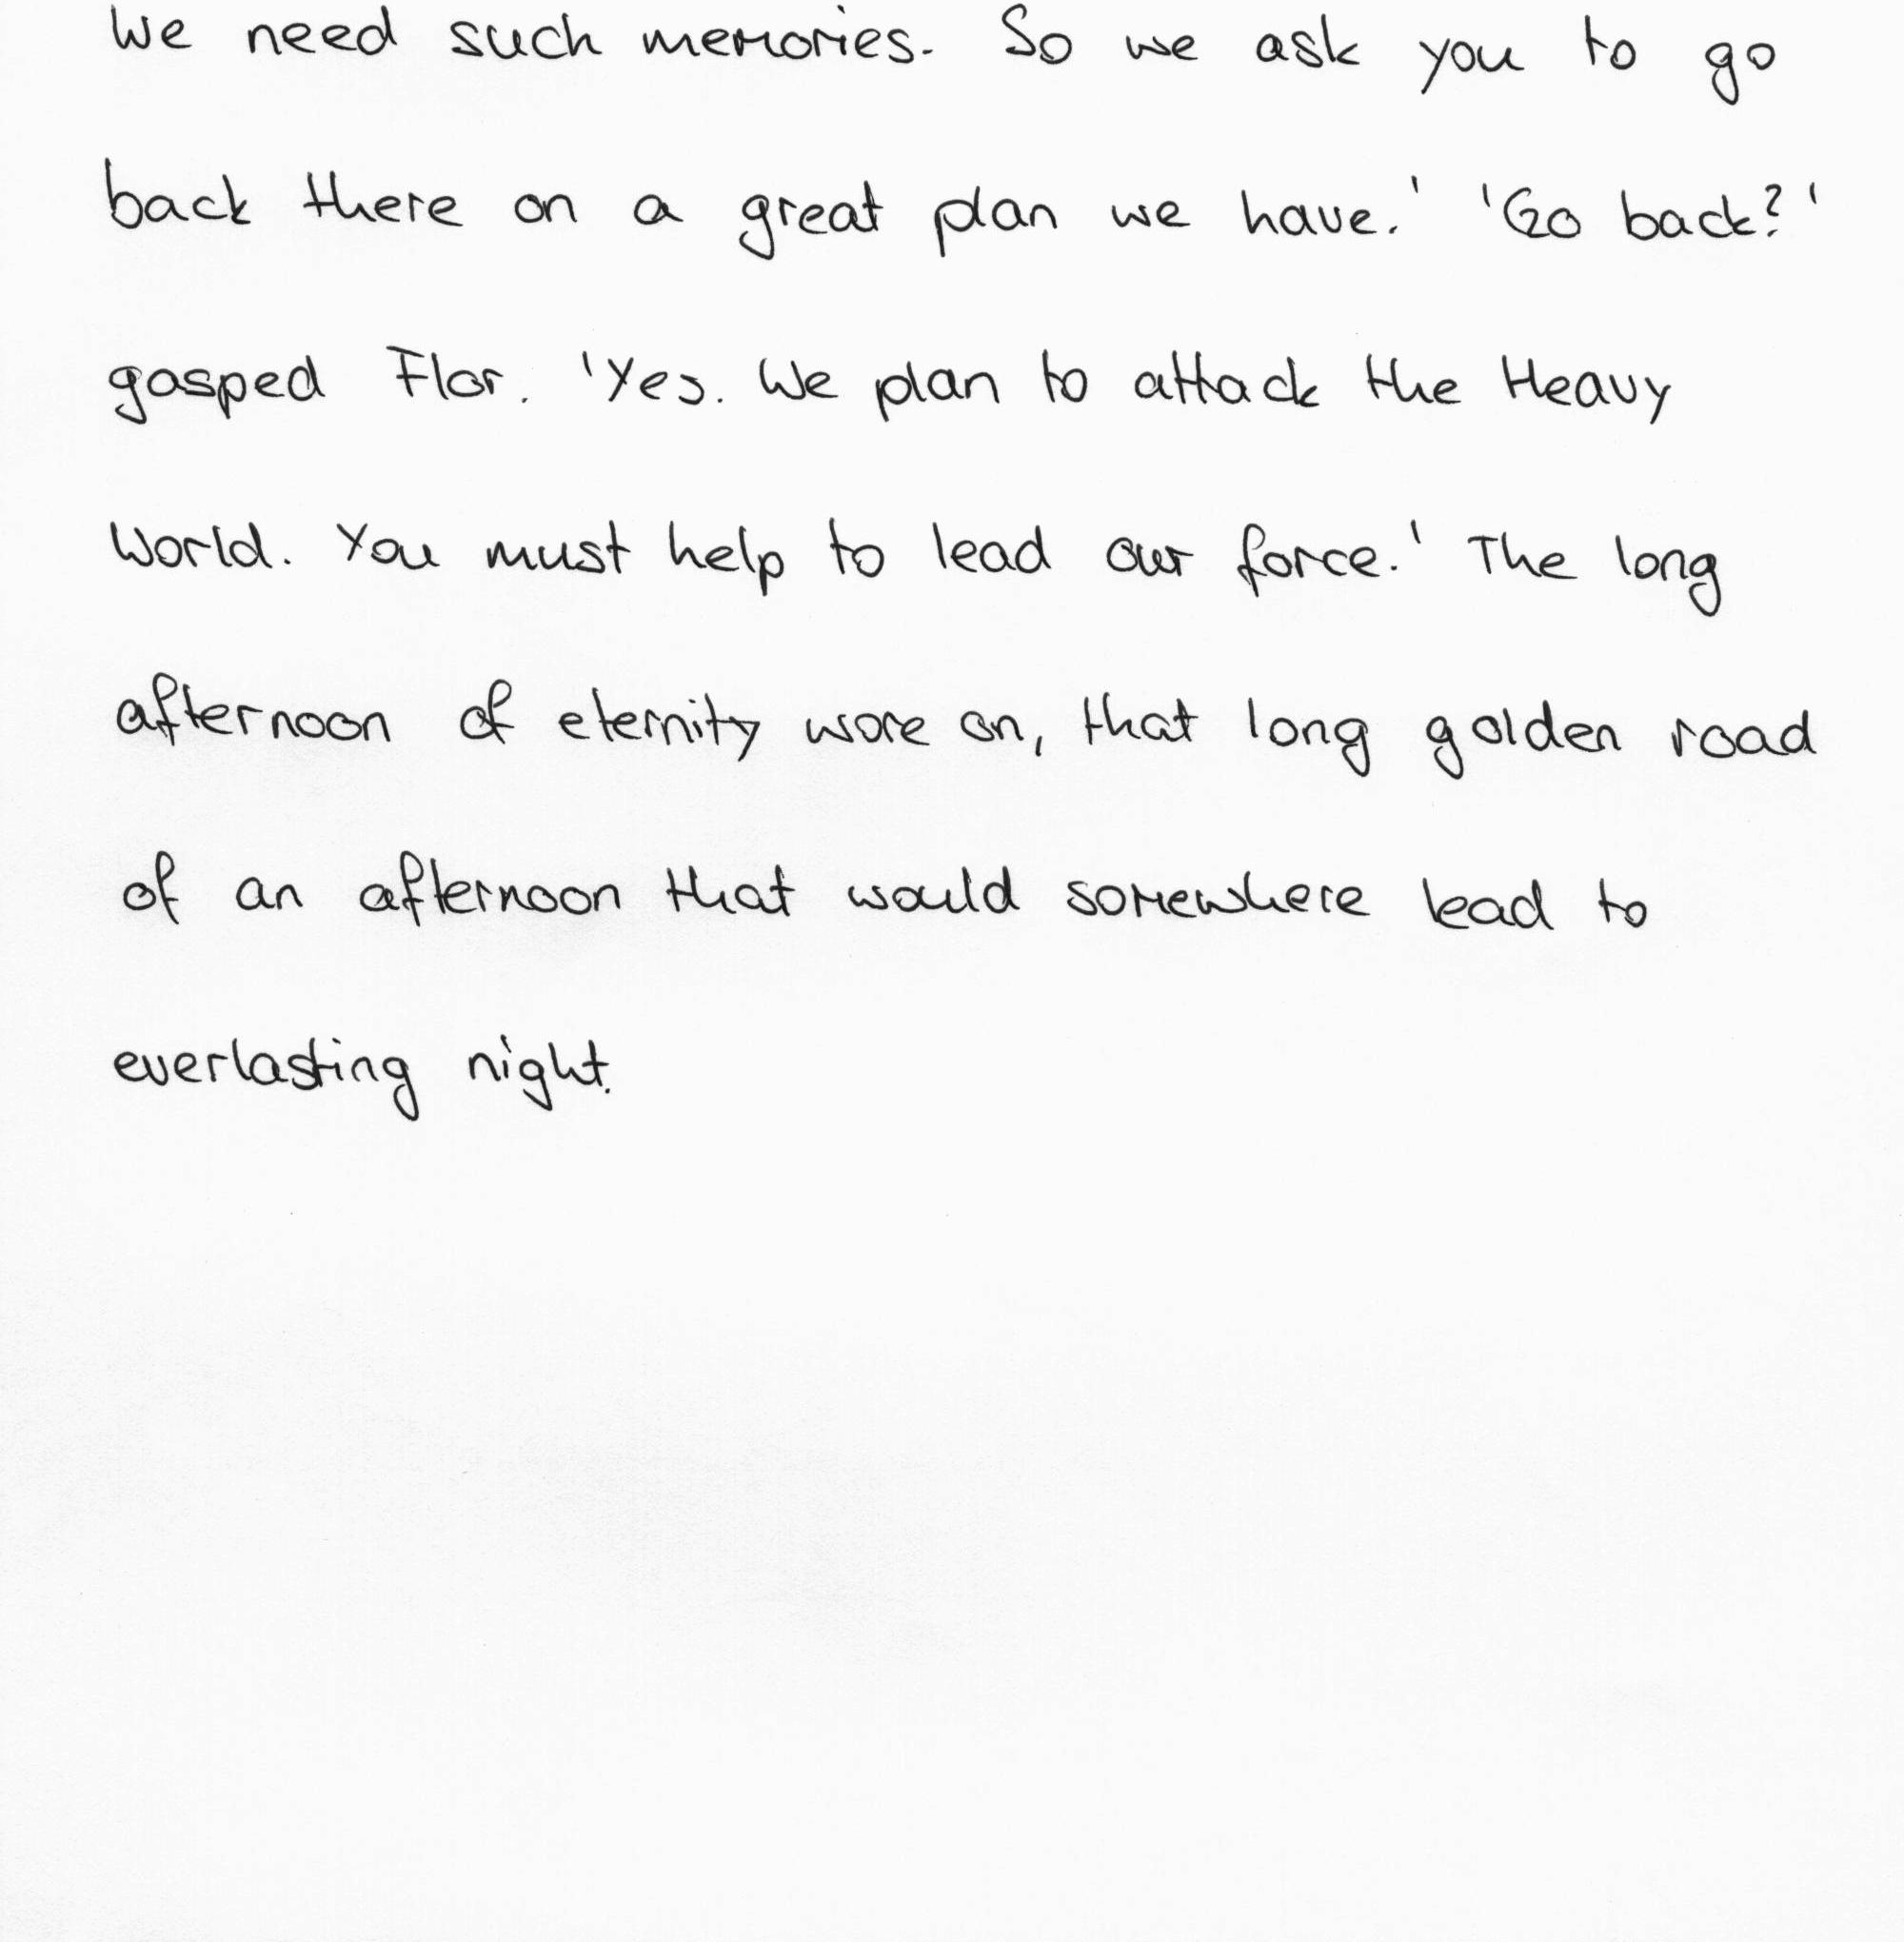 We need such memories. So we ask you to go
back there on a great plan we have.' 'Go back?'
gasped Flor. 'Yes. We plan to attack the Heavy
World. You must help to lead our force.' The long
afternoon of eternity wore on, that long golden road
of an afternoon that would somewhere lead to
everlasting night.